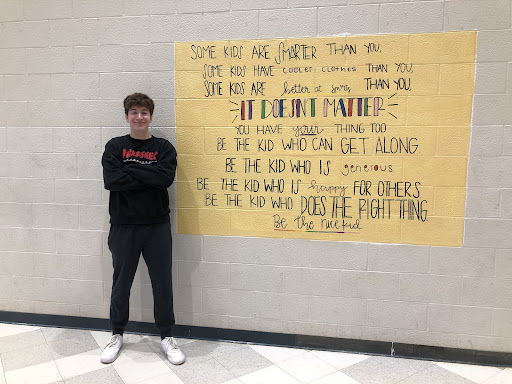 SOME KIDS ARE SMARTER THAN YOU,
SOME KIDS HAVE COOLER CLOTHES THAN YOU,
SOME KIDS ARE better at sports THAN YOU,
IT DOESN'T MATTER
YOU HAVE your THING TOO
BE THE KID WHO CAN GET ALONG
BE THE KID WHO IS generous
BE THE KID WHO IS happy FOR OTHERS
BE THE KID WHO DOES THE RIGHT THING
Be the nice kid
THRASHER